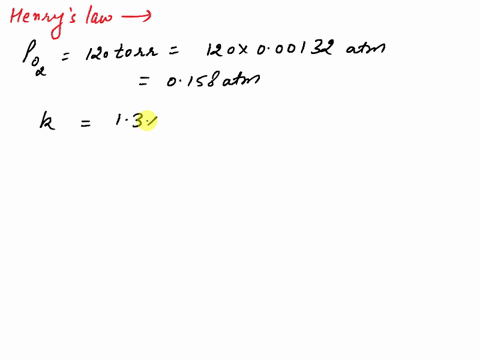 Henry's law →
P_O₂ = 120 torr = 120 x 0.00132 atm
= 0.158 atm
k = 1.3